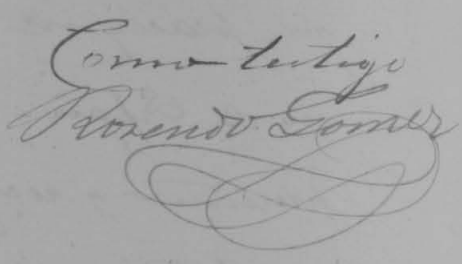 Como testigo
Rosendo Gomez